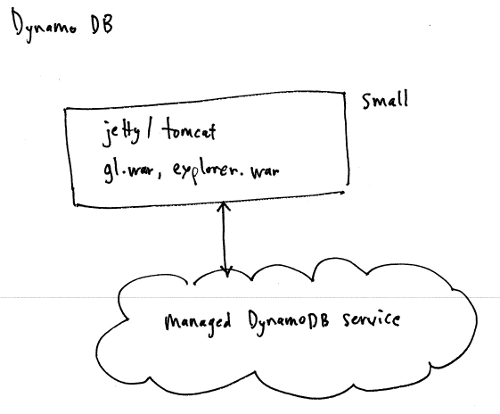 Dynamo DB
small
jetty / tomcat
gl.war, explorer.war
Managed DynamoDB service